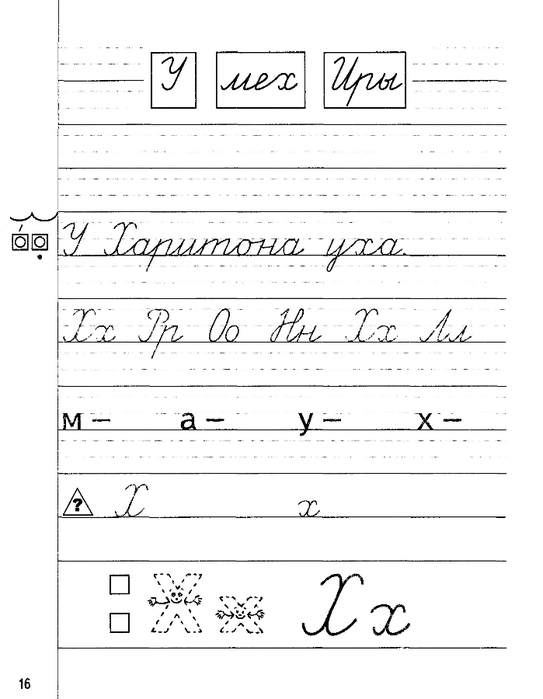 У мех Иры
У Харитона уха.
Хх Рр Оо Нн Хх Лл
м – а – у – х –
? Х х
Х х Х х
16